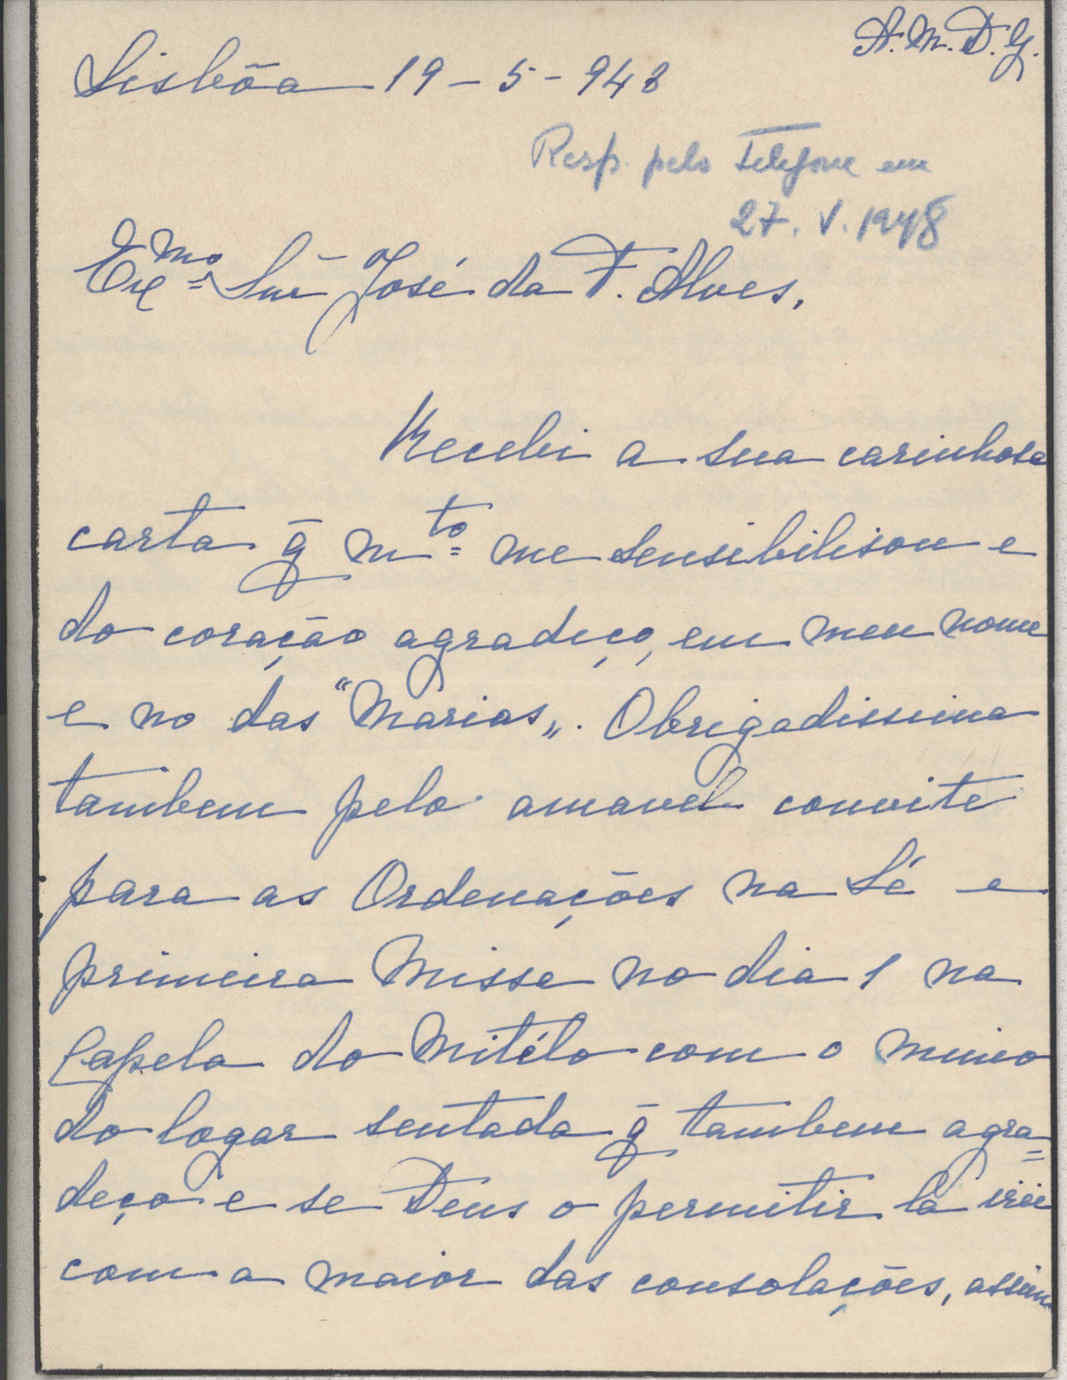 A. M. D. G.
Lisbôa 19-5-948
Resp. pelo Telefone em
27. V. 1948
Exmo Snr José da F. Alves,
Recebi a sua carinhosa
carta q̄ mto me sensibilisou e
do coração agradeço, em meu nome
e no das "Marias„. Obrigadissima
tambem pelo amavel convite
para as Ordenações na Sé e
primeira Missa no dia 1 na
Capela do Mitélo com o mimo
do logar sentada q̄ tambem agra=
deço e se Deus o permitir lá irei
com a maior das consolações, assim